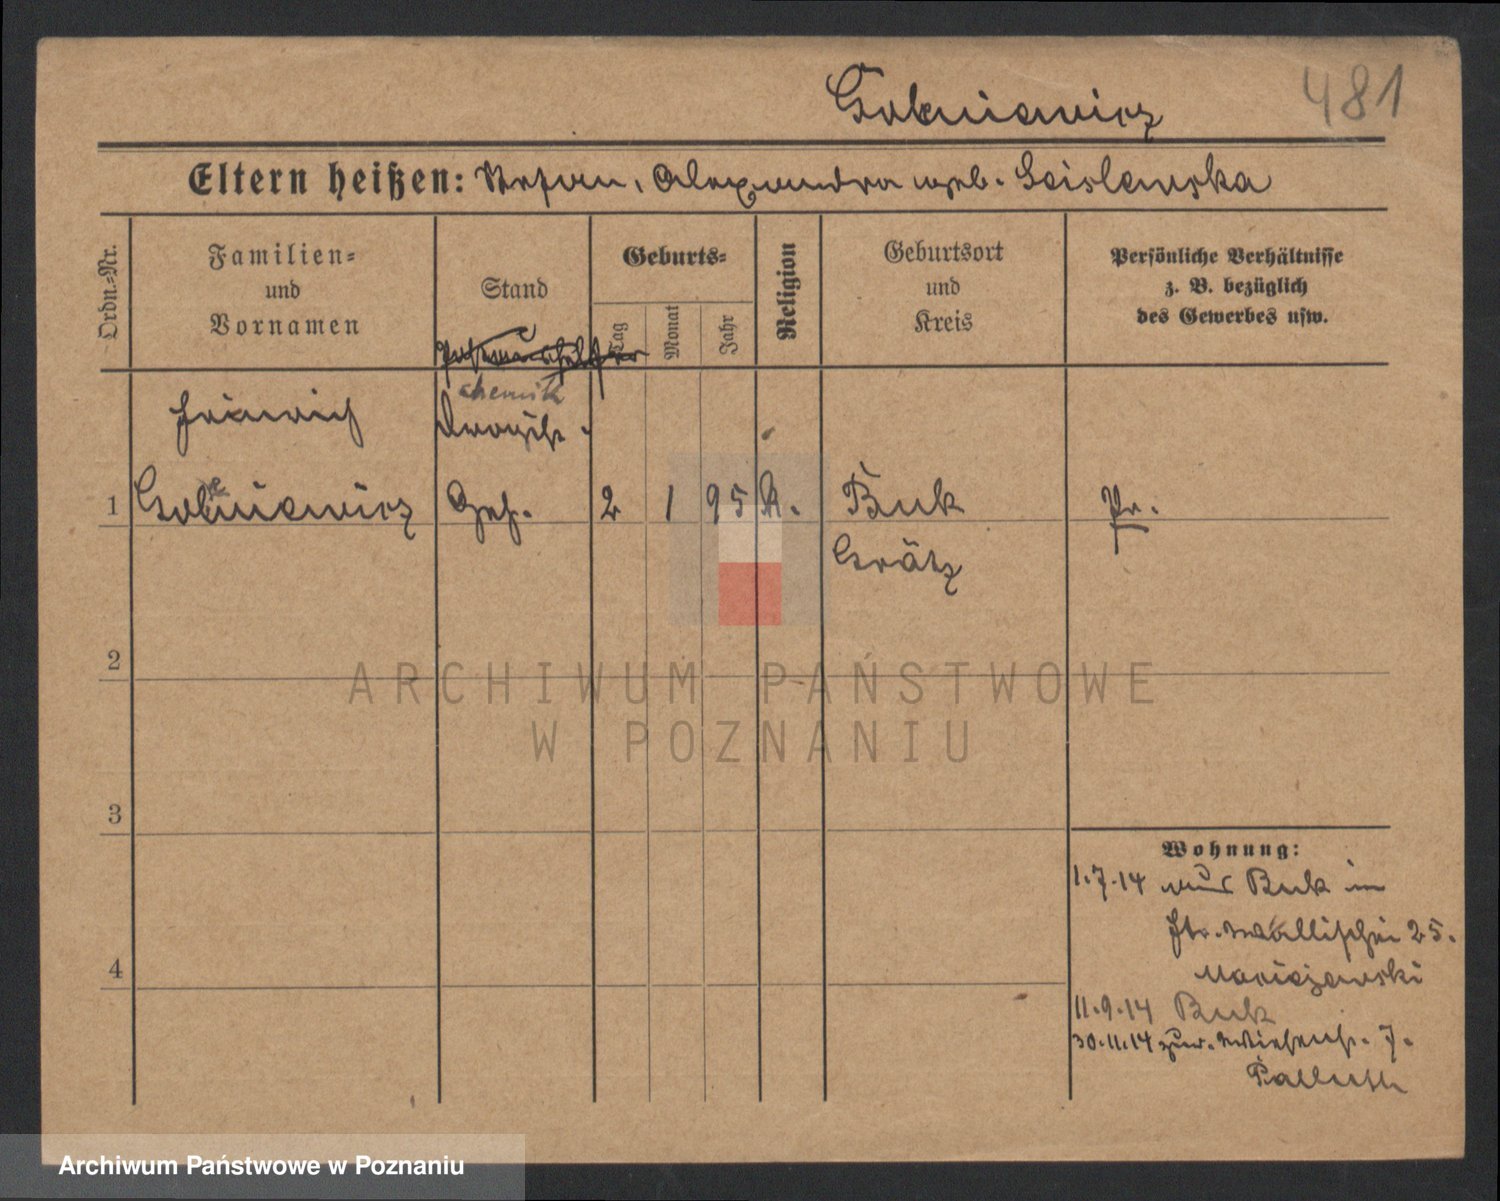 Golniewicz
481
Eltern heißen: Stefan, Alexandra geb. Cieslewska
Ordn.=Nr.
Familien=
und
Vornamen
Stand
Geburts=
Tag
Monat
Jahr
Religion
Geburtsort
und
Kreis
Persönliche Verhältnisse
z. B. bezüglich
des Gewerbes usw.
chemik
Heinrich
Drogist.
1
Golniewicz
Geh.
2
1
95
K.
Buk
Grätz
Pr.
2
3
4
Wohnung:
1.7.14 aus Buk in
Str. Wallischei 25.
Maciejewski
11.9.14 Buk
30.11.14 zur. Wiesenstr. 7.
ARCHIWUM PAŃSTWOWE
W POZNANIU
Archiwum Państwowe w Poznaniu